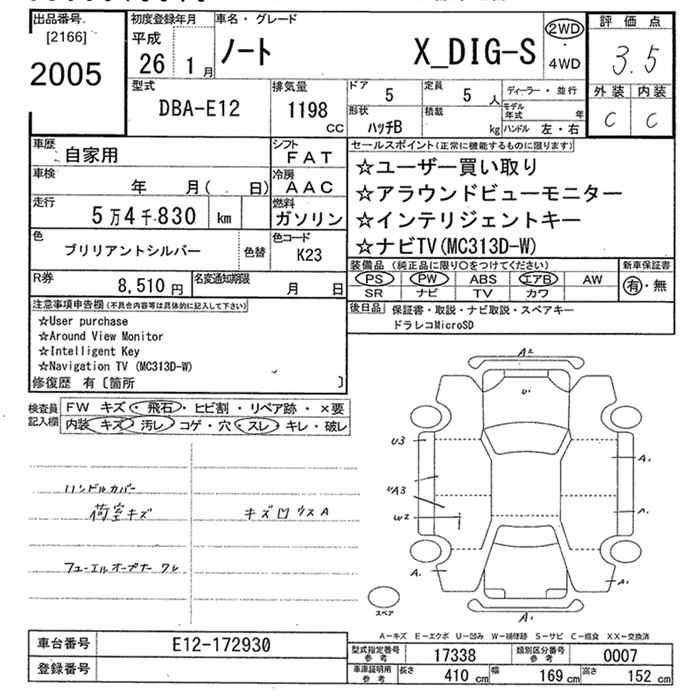 出品番号
[2166]
2005
初度登録年月
平成
26 1月
車名・グレード
ノート X_DIG-S
2WD
・
4WD
評価点
3.5
外装 内装
C C
型式
DBA-E12
排気量
1198
CC
ドア
5
定員
5 人
形状
ハッチB
積載
kg
ディーラー・並行
モデル年式 年
ハンドル 左・右
車歴
自家用
シフト
FAT
車検
年 月( 日)
冷房
AAC
走行
5万4千830 km
燃料
ガソリン
色
ブリリアントシルバー
色替
色コード
K23
R券
8,510円
名変通知期限
月 日
セールスポイント(正常に機能するものに限ります)
☆ユーザー買い取り
☆アラウンドビューモニター
☆インテリジェントキー
☆ナビTV(MC313D-W)
装備品(純正品に限り○をつけてください)
PS PW ABS エアB AW
SR ナビ TV カワ
新車保証書
有・無
後日品
保証書・取説・ナビ取説・スペアキー
ドラレコMicroSD
注意事項申告欄(不具合内容等は具体的に記入して下さい)
☆User purchase
☆Around View Monitor
☆Intelligent Key
☆Navigation TV (MC313D-W)
修復歴 有〔箇所 〕
検査員記入欄
FW キズ・飛石・ヒビ割・リペア跡・×要
内装 キズ・汚レ・コゲ・穴・スレ・キレ・破レ
ハンドルカバー
荷室キズ
キズ凹リスA
フューエルオープナーワレ
A2
U1
U3
A1
UA3
W2
A1
A1
A1
A1
スペア
A-キズ E-エクボ U-凹み W-補修跡 S-サビ C-腐食 XX-交換済
車台番号
E12-172930
登録番号
型式指定番号
参考
17338
類別区分番号
参考
0007
車車証明用
参考
長さ
410 cm
幅
169 cm
高さ
152 cm